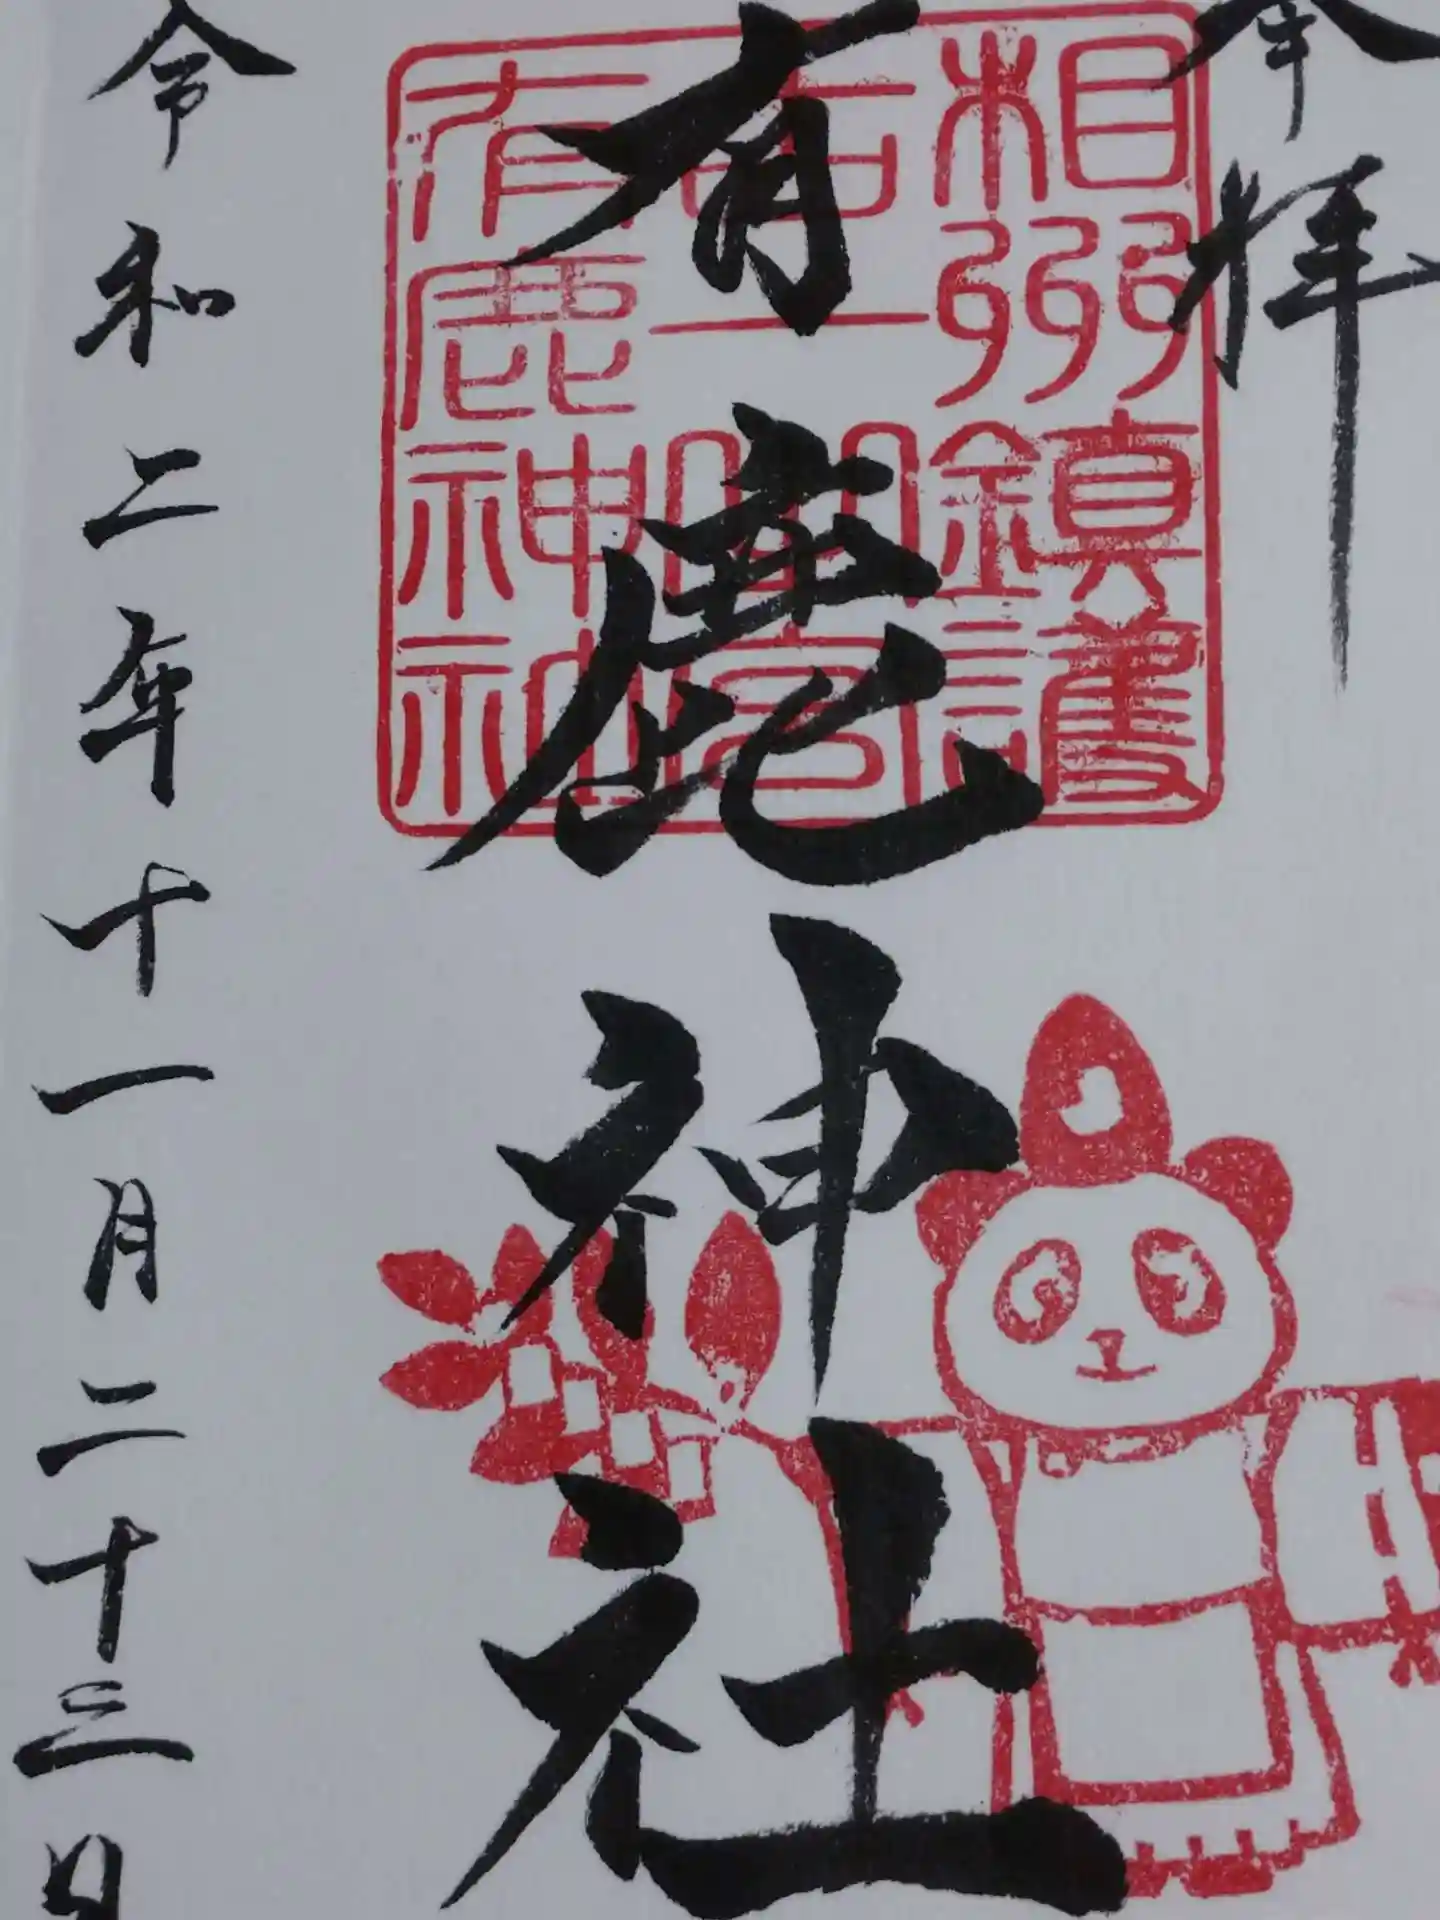 奉拝
相州鎮護
古一宮
有鹿神社
有鹿神社
令和二年十一月二十三日